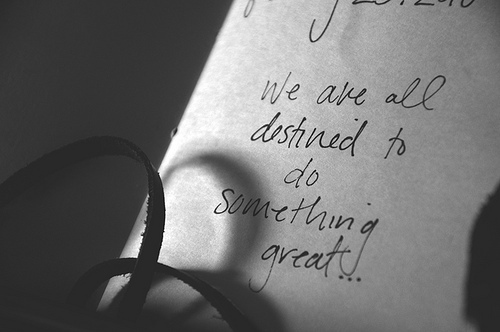 We are all
destined to
do
something
great...